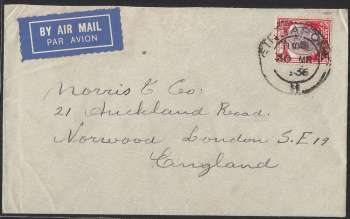 BY AIR MAIL
PAR AVION
SINGAPORE
1936
Morris & Co:
21 Auckland Road.
Norwood London S.E 19
England